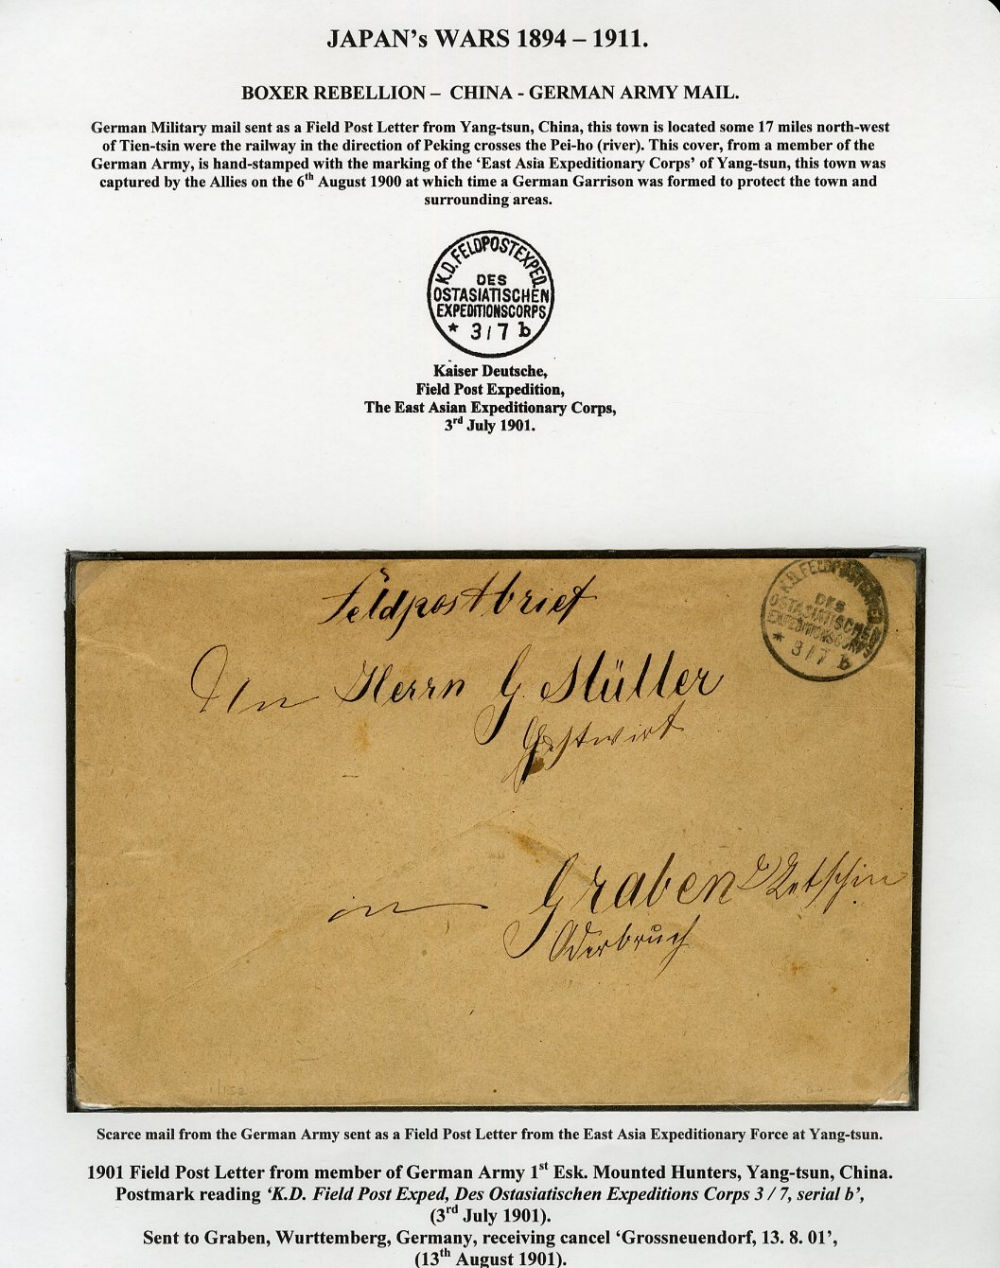 JAPAN's WARS 1894 – 1911.
BOXER REBELLION – CHINA - GERMAN ARMY MAIL.
German Military mail sent as a Field Post Letter from Yang-tsun, China, this town is located some 17 miles north-west
of Tien-tsin were the railway in the direction of Peking crosses the Pei-ho (river). This cover, from a member of the
German Army, is hand-stamped with the marking of the 'East Asia Expeditionary Corps' of Yang-tsun, this town was
captured by the Allies on the 6th August 1900 at which time a German Garrison was formed to protect the town and
surrounding areas.
K.D. FELDPOSTEXPED.
DES
OSTASIATISCHEN
EXPEDITIONSCORPS
* 3/7 b
Kaiser Deutsche,
Field Post Expedition,
The East Asian Expeditionary Corps,
3rd July 1901.
Feldpostbrief
K.D. FELDPOSTEXPED.
DES
OSTASIATISCHEN
EXPEDITIONSCORPS
* 3/7 b
An Herrn G. Müller
Gastwirt
in Graben Letschin
Oderbruch
Scarce mail from the German Army sent as a Field Post Letter from the East Asia Expeditionary Force at Yang-tsun.
1901 Field Post Letter from member of German Army 1st Esk. Mounted Hunters, Yang-tsun, China.
Postmark reading 'K.D. Field Post Exped, Des Ostasiatischen Expeditions Corps 3 / 7, serial b',
(3rd July 1901).
Sent to Graben, Wurttemberg, Germany, receiving cancel 'Grossneuendorf, 13. 8. 01',
(13th August 1901).